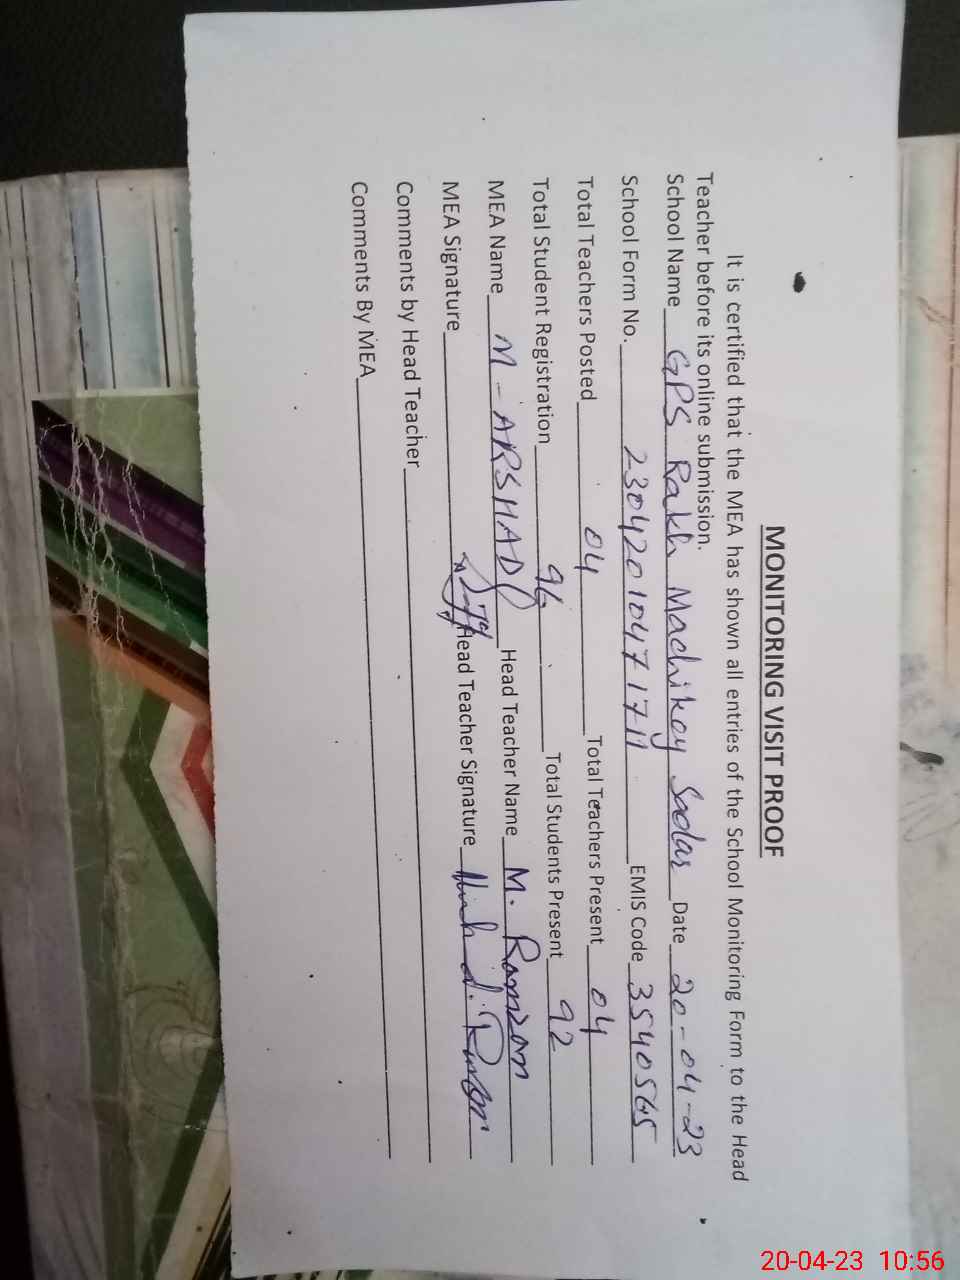 MONITORING VISIT PROOF
It is certified that the MEA has shown all entries of the School Monitoring Form to the Head
Teacher before its online submission.
School Name GPS Rakh Machikey Sadar Date 20-04-23
School Form No. 2304201047 1711 EMIS Code 3540565
Total Teachers Posted 04 Total Teachers Present 04
Total Student Registration 96 Total Students Present 92
MEA Name M-ARSHAD Head Teacher Name M. Ramzan
MEA Signature Head Teacher Signature
Comments by Head Teacher
Comments By MEA
20-04-23 10:56